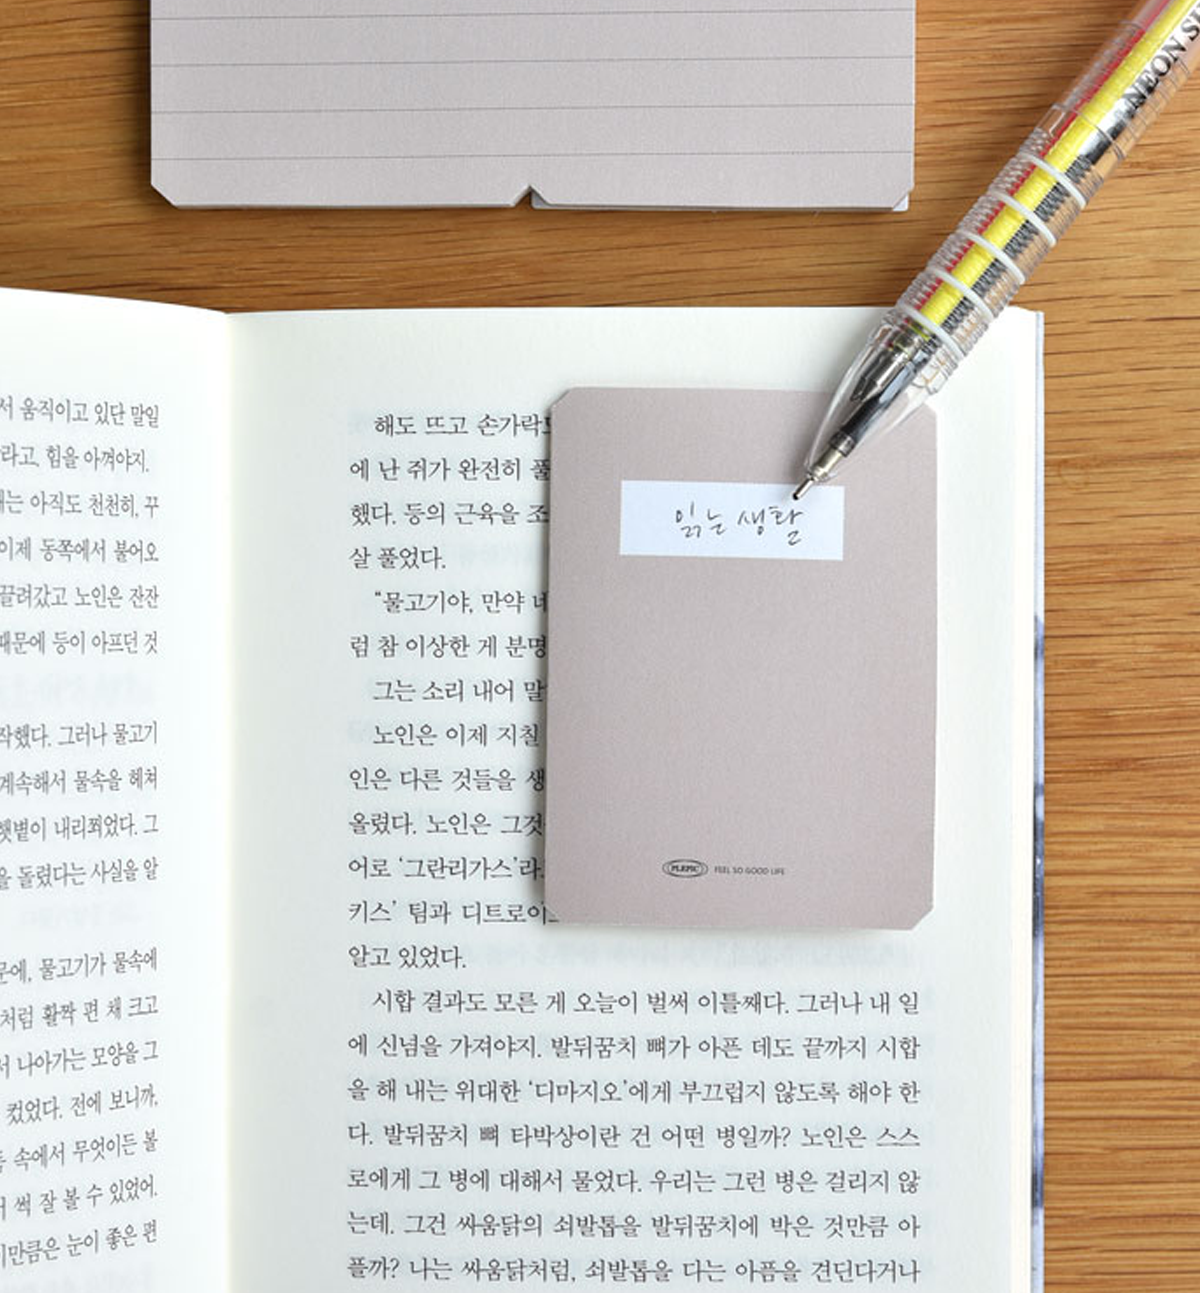 NEON
서 움직이고 있단 말일
라고, 힘을 아껴야지.
는 아직도 천천히, 꾸
이제 동쪽에서 불어오
끌려갔고 노인은 잔잔
때문에 등이 아프던 것
작했다. 그러나 물고기
계속해서 물속을 헤쳐
햇볕이 내리쬐었다. 그
을 돌렸다는 사실을 알
문에, 물고기가 물속에
처럼 활짝 편 채 크고
서 나아가는 모양을 그
컸었다. 전에 보니까,
속에서 무엇이든 볼
썩 잘 볼 수 있었어.
이만큼은 눈이 좋은 편
해도 뜨고 손가락도
에 난 쥐가 완전히 풀
했다. 등의 근육을 조
살 풀었다.
“물고기야, 만약 네
럼 참 이상한 게 분명
그는 소리 내어 말
노인은 이제 지칠
인은 다른 것들을 생
올렸다. 노인은 그것
어로 ‘그란리가스’라
키스’ 팀과 디트로이
알고 있었다.
시합 결과도 모른 게 오늘이 벌써 이틀째다. 그러나 내 일
에 신념을 가져야지. 발뒤꿈치 뼈가 아픈 데도 끝까지 시합
을 해 내는 위대한 ‘디마지오’에게 부끄럽지 않도록 해야 한
다. 발뒤꿈치 뼈 타박상이란 건 어떤 병일까? 노인은 스스
로에게 그 병에 대해서 물었다. 우리는 그런 병은 걸리지 않
는데. 그건 싸움닭의 쇠발톱을 발뒤꿈치에 박은 것만큼 아
플까? 나는 싸움닭처럼, 쇠발톱을 다는 아픔을 견딘다거나
읽는 생활
PLEPIC FEEL SO GOOD LIFE